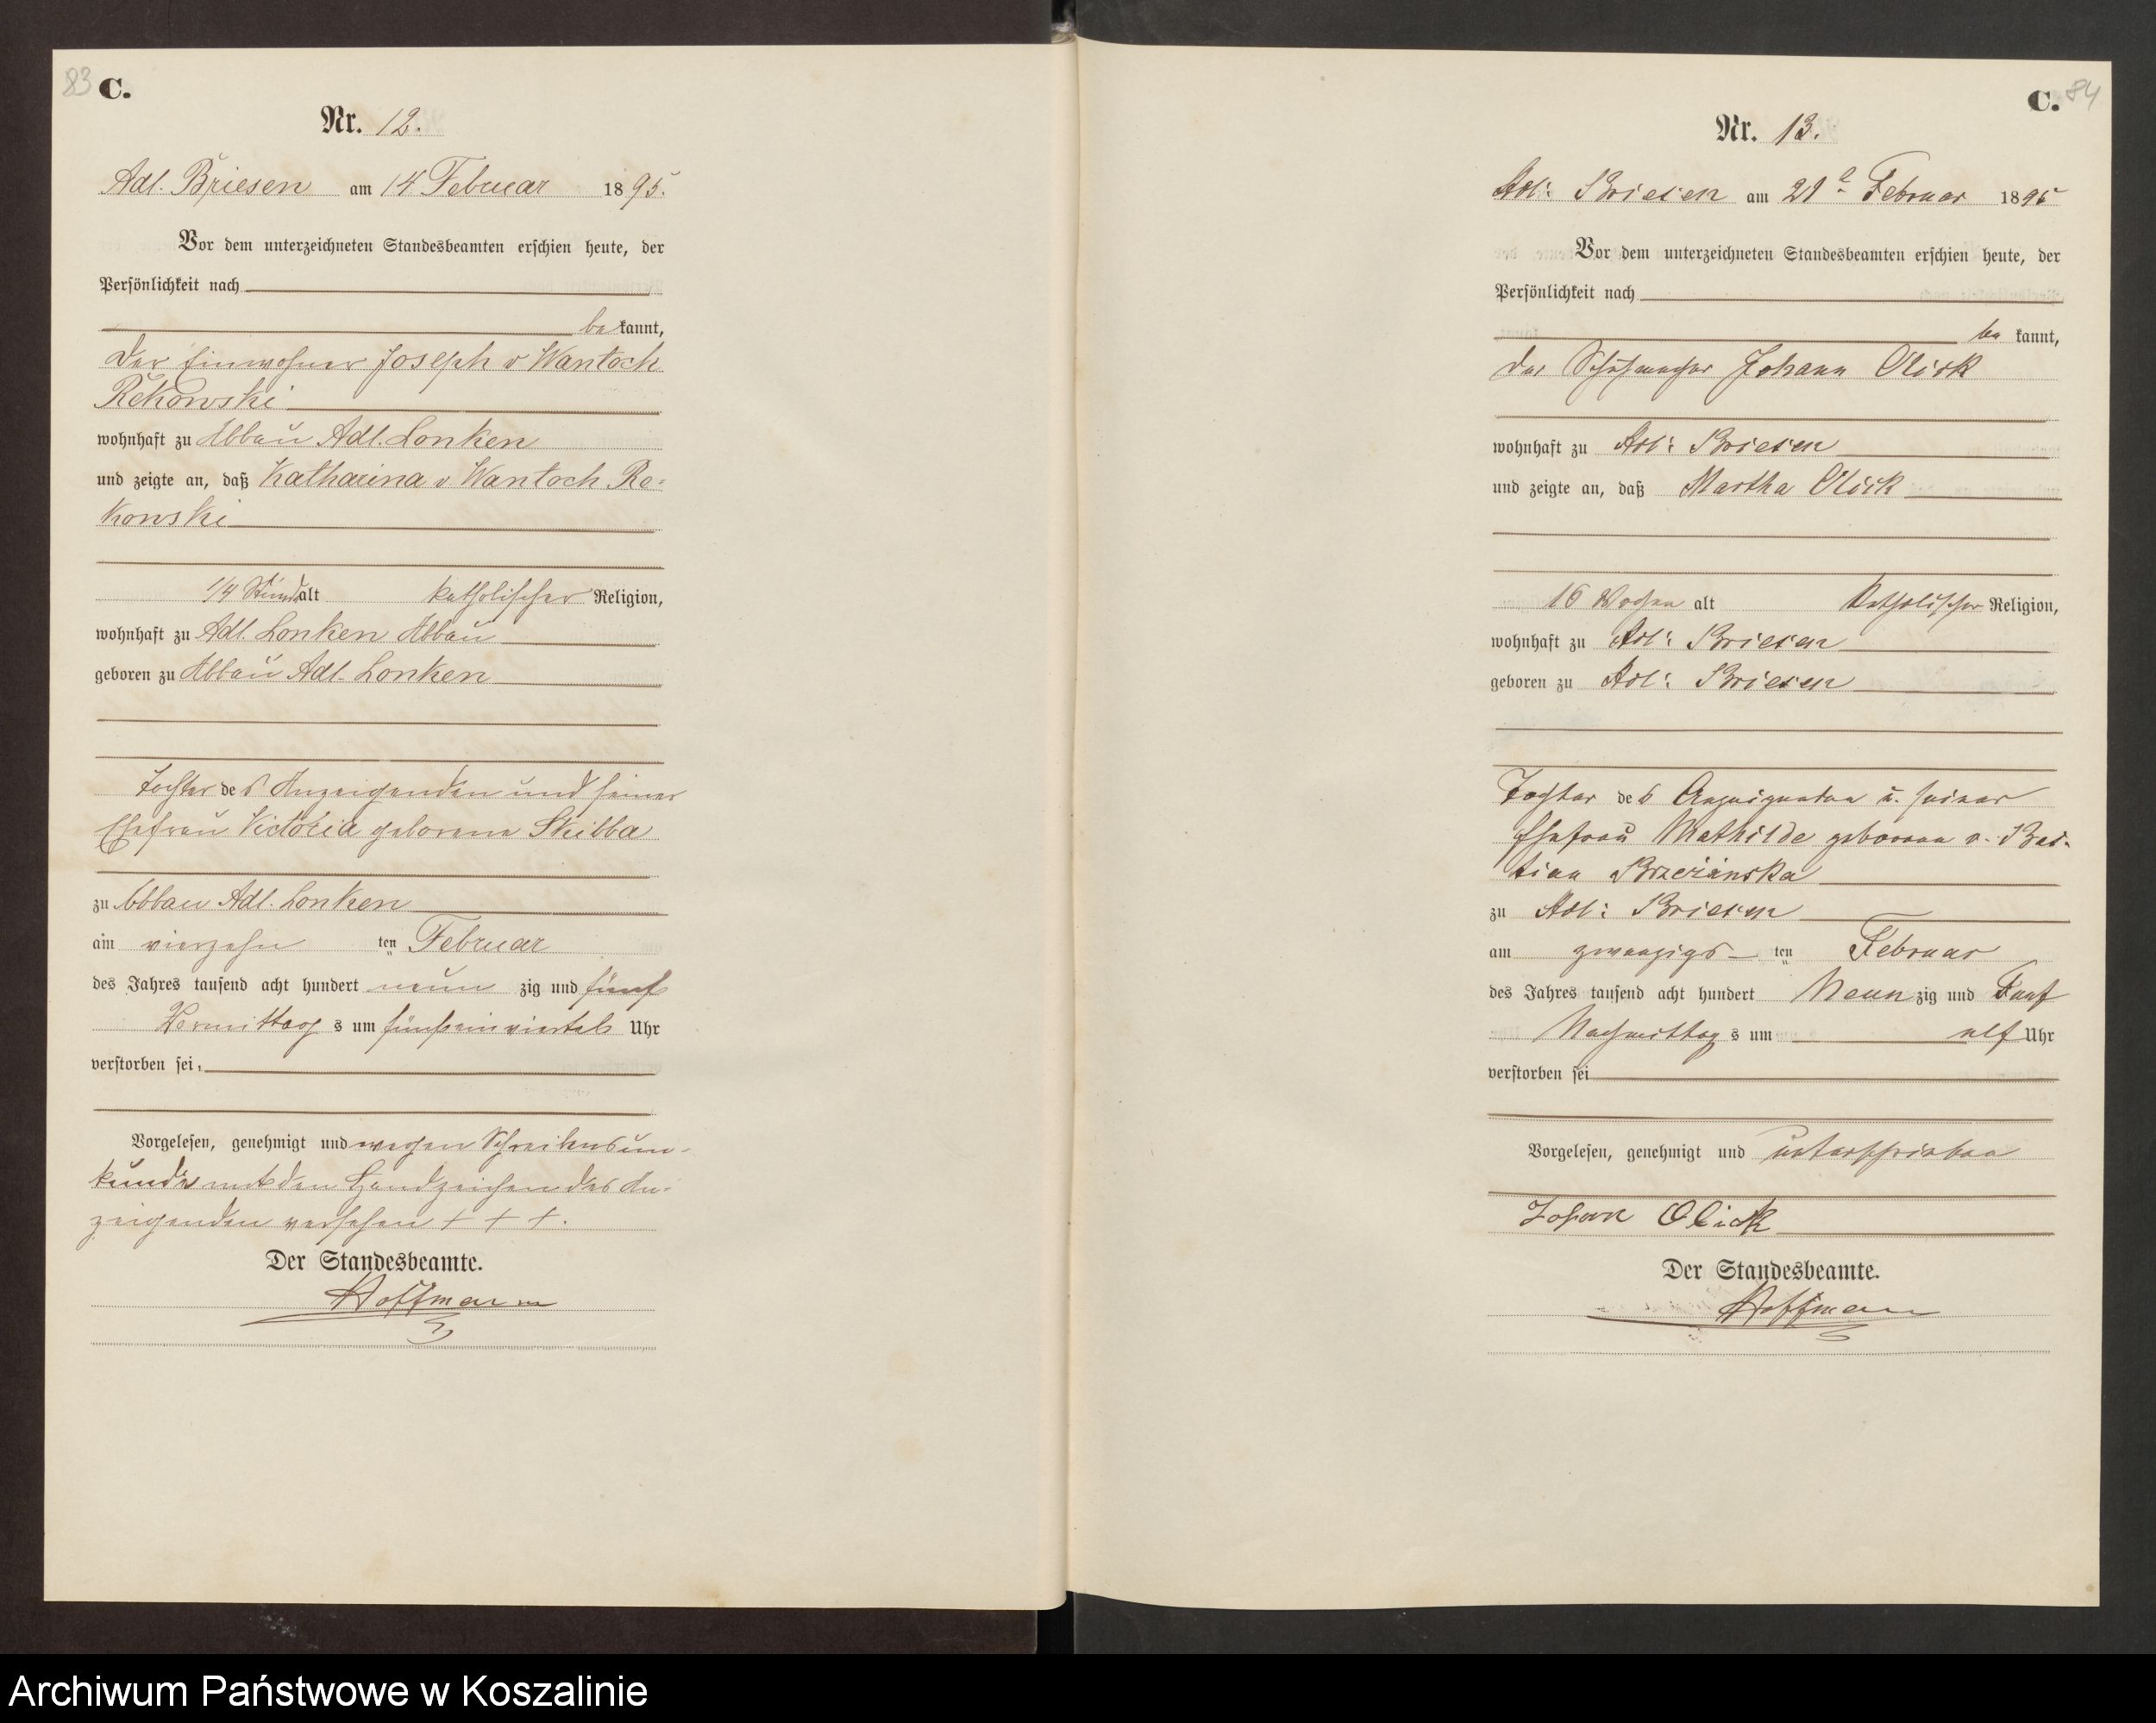 83 C.
Nr. 12.
Adl. Briesen am 14 Februar 1895.
Vor dem unterzeichneten Standesbeamten erschien heute, der
Persönlichkeit nach
be kannt,
der Einwohner Joseph v Wantoch
Rekowski
wohnhaft zu Abbau Adl. Lonken
und zeigte an, daß Katharina v. Wantoch Re-
kowski
1/4 Stunde alt katholischer Religion,
wohnhaft zu Adl. Lonken Abbau
geboren zu Abbau Adl. Lonken
Tochter des Anzeigenden und seiner
Ehefrau Victoria geborene Skibba
zu Abbau Adl. Lonken
am vierzehn ten Februar
des Jahres tausend acht hundert neun zig und fünf
Vormittag s um fünfeinviertel Uhr
verstorben sei.
Vorgelesen, genehmigt und wegen Schreibensun-
kunde mit den Handzeichen des An-
zeigenden versehen + + +.
Der Standesbeamte.
Hoffmann
C. 84
Nr. 13.
Adl: Briesen am 21 Februar 1895
Vor dem unterzeichneten Standesbeamten erschien heute, der
Persönlichkeit nach
be kannt,
der Schuhmacher Johann Olick
wohnhaft zu Adl: Briesen
und zeigte an, daß Martha Olick
16 Wochen alt Katholischer Religion,
wohnhaft zu Adl: Briesen
geboren zu Adl: Briesen
Tochter des Anzeigenden u. seiner
Ehefrau Mathilde geborene v.
Brzezinska
zu Adl: Briesen
am zwanzigs ten Februar
des Jahres tausend acht hundert Neun zig und Fünf
Nachmittag s um elf Uhr
verstorben sei
Vorgelesen, genehmigt und unterschrieben
Johann Olick
Der Standesbeamte.
Hoffmann
Archiwum Państwowe w Koszalinie